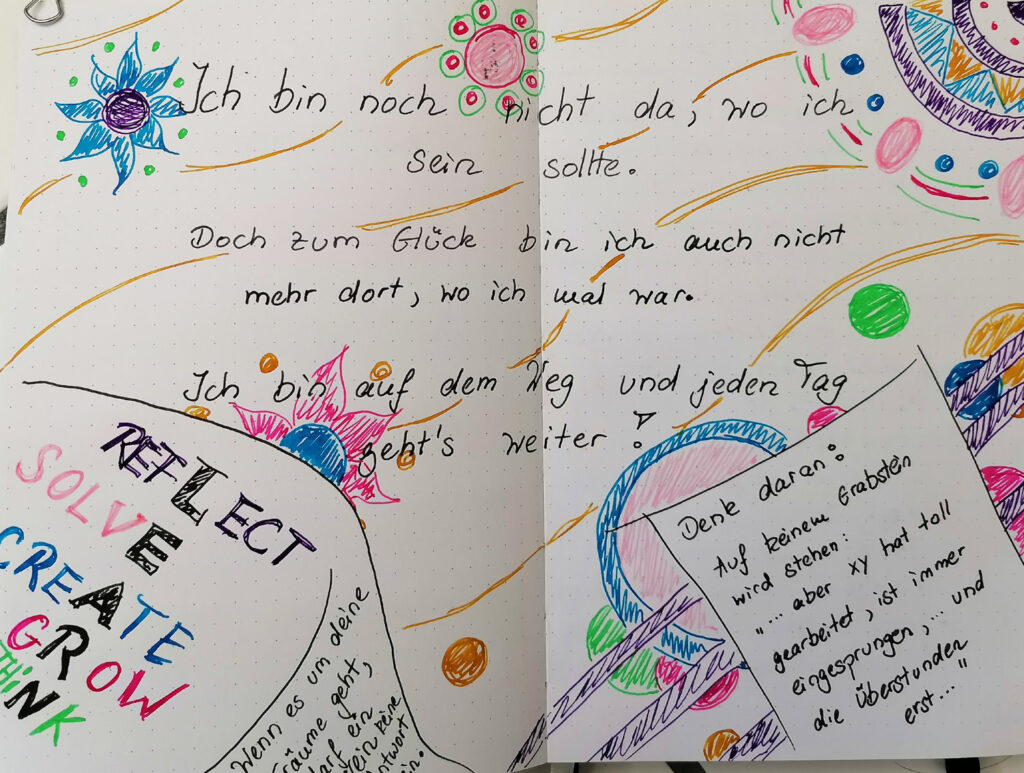 Ich bin noch nicht da, wo ich
sein sollte.
Doch zum Glück bin ich auch nicht
mehr dort, wo ich mal war.
Ich bin auf dem Weg und jeden Tag
geht's weiter!
REFLECT
SOLVE
CREATE
GROW
THINK
Wenn es um deine
Träume geht,
darf ein
Nein keine
Antwort
sein.
Denk daran:
Auf keinem Grabstein
wird stehen:
"... aber xy hat toll
gearbeitet, ist immer
eingesprungen,... und
die Überstunden
erst..."